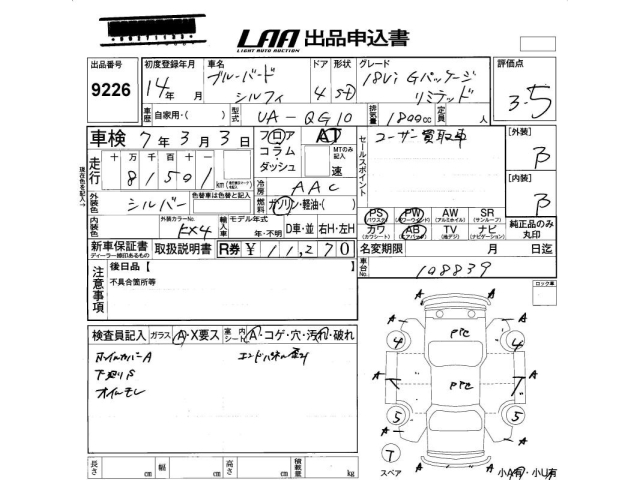 LAA 出品申込書
LIGHT AUTO AUCTION
出品番号 9226
初度登録年月 14年 月
車名 ブルーバード シルフィ
ドア 4
形状 SD
グレード 18Vi Gパッケージ リミテッド
評価点 3.5
車歴 自家用・( )
型式 UA-QG10
排気量 1800cc
定員 人
車検 7年3月3日
フロア コラム・ダッシュ
AT
MTのみ記入 速
セールスポイント ユーザー買取車
[外装] B
[内装] B
走行 十万千百十一 81501 km
冷房 AAC
外装色 シルバー
色替車は色替と記入
燃料 ガソリン・軽油・( )
内装色
外装カラーNo. KX4
輸入車 モデル年式 年・不明
D車・並 右H・左H
PS (パワステ) PW (パワーウィンド) AW (アルミホイル) SR (サンルーフ)
カワ (カワシート) AB (エアバッグ) TV (地デジ) ナビ (ナビゲーション)
純正品のみ丸印
新車保証書 取扱説明書 R券 ¥11,270
ディーラー捺印あるもの
名変期限 月 日迄
車台No. 108839
注意事項
後日品【 】
不具合箇所等
ロック車
検査員記入 ガラス A・X要ス 室内 シート A・コゲ・穴・汚れ・破れ
ホイルカバーA
下廻りS
オイルモレ
A A
4 P P 4
A A
5 5
A A
T
スペア
小A有・小U有
長さ cm 幅 cm 高さ cm 積載量 kg